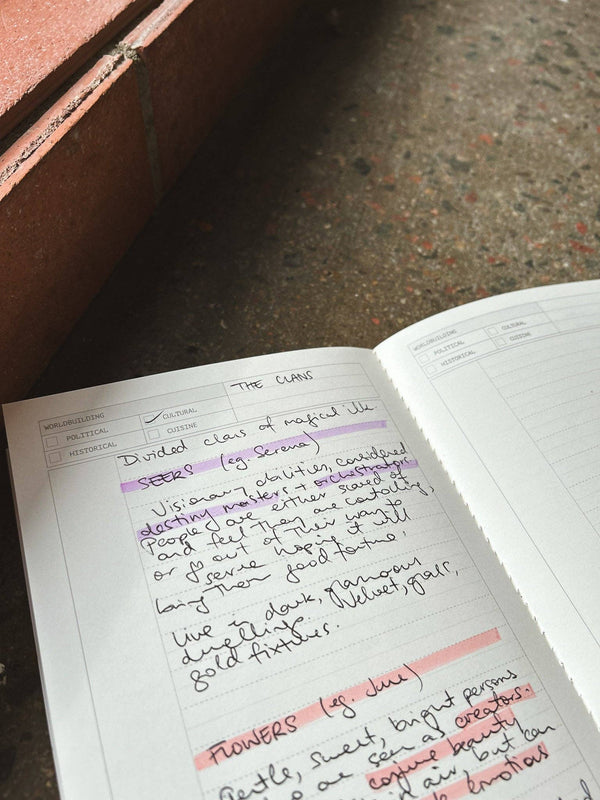 THE CLANS
WORLDBUILDING
CULTURAL
POLITICAL
CUISINE
HISTORICAL
Divided class of magical ilk
SEERS (eg. Serena)
Visionary abilities, considered
destiny masters + orchestrators.
People are either scared of
and feel they are controlling,
or go out of their way to
serve hoping it will
bring them good fortune.
Live in dark, glamorous
dwellings. Velvet, glass,
gold fixtures.
FLOWERS (eg. June)
Gentle, sweet, bright persons
who are seen as creators.
beauty
air, but can
emotions
WORLDBUILDING
CULTURAL
POLITICAL
CUISINE
HISTORICAL